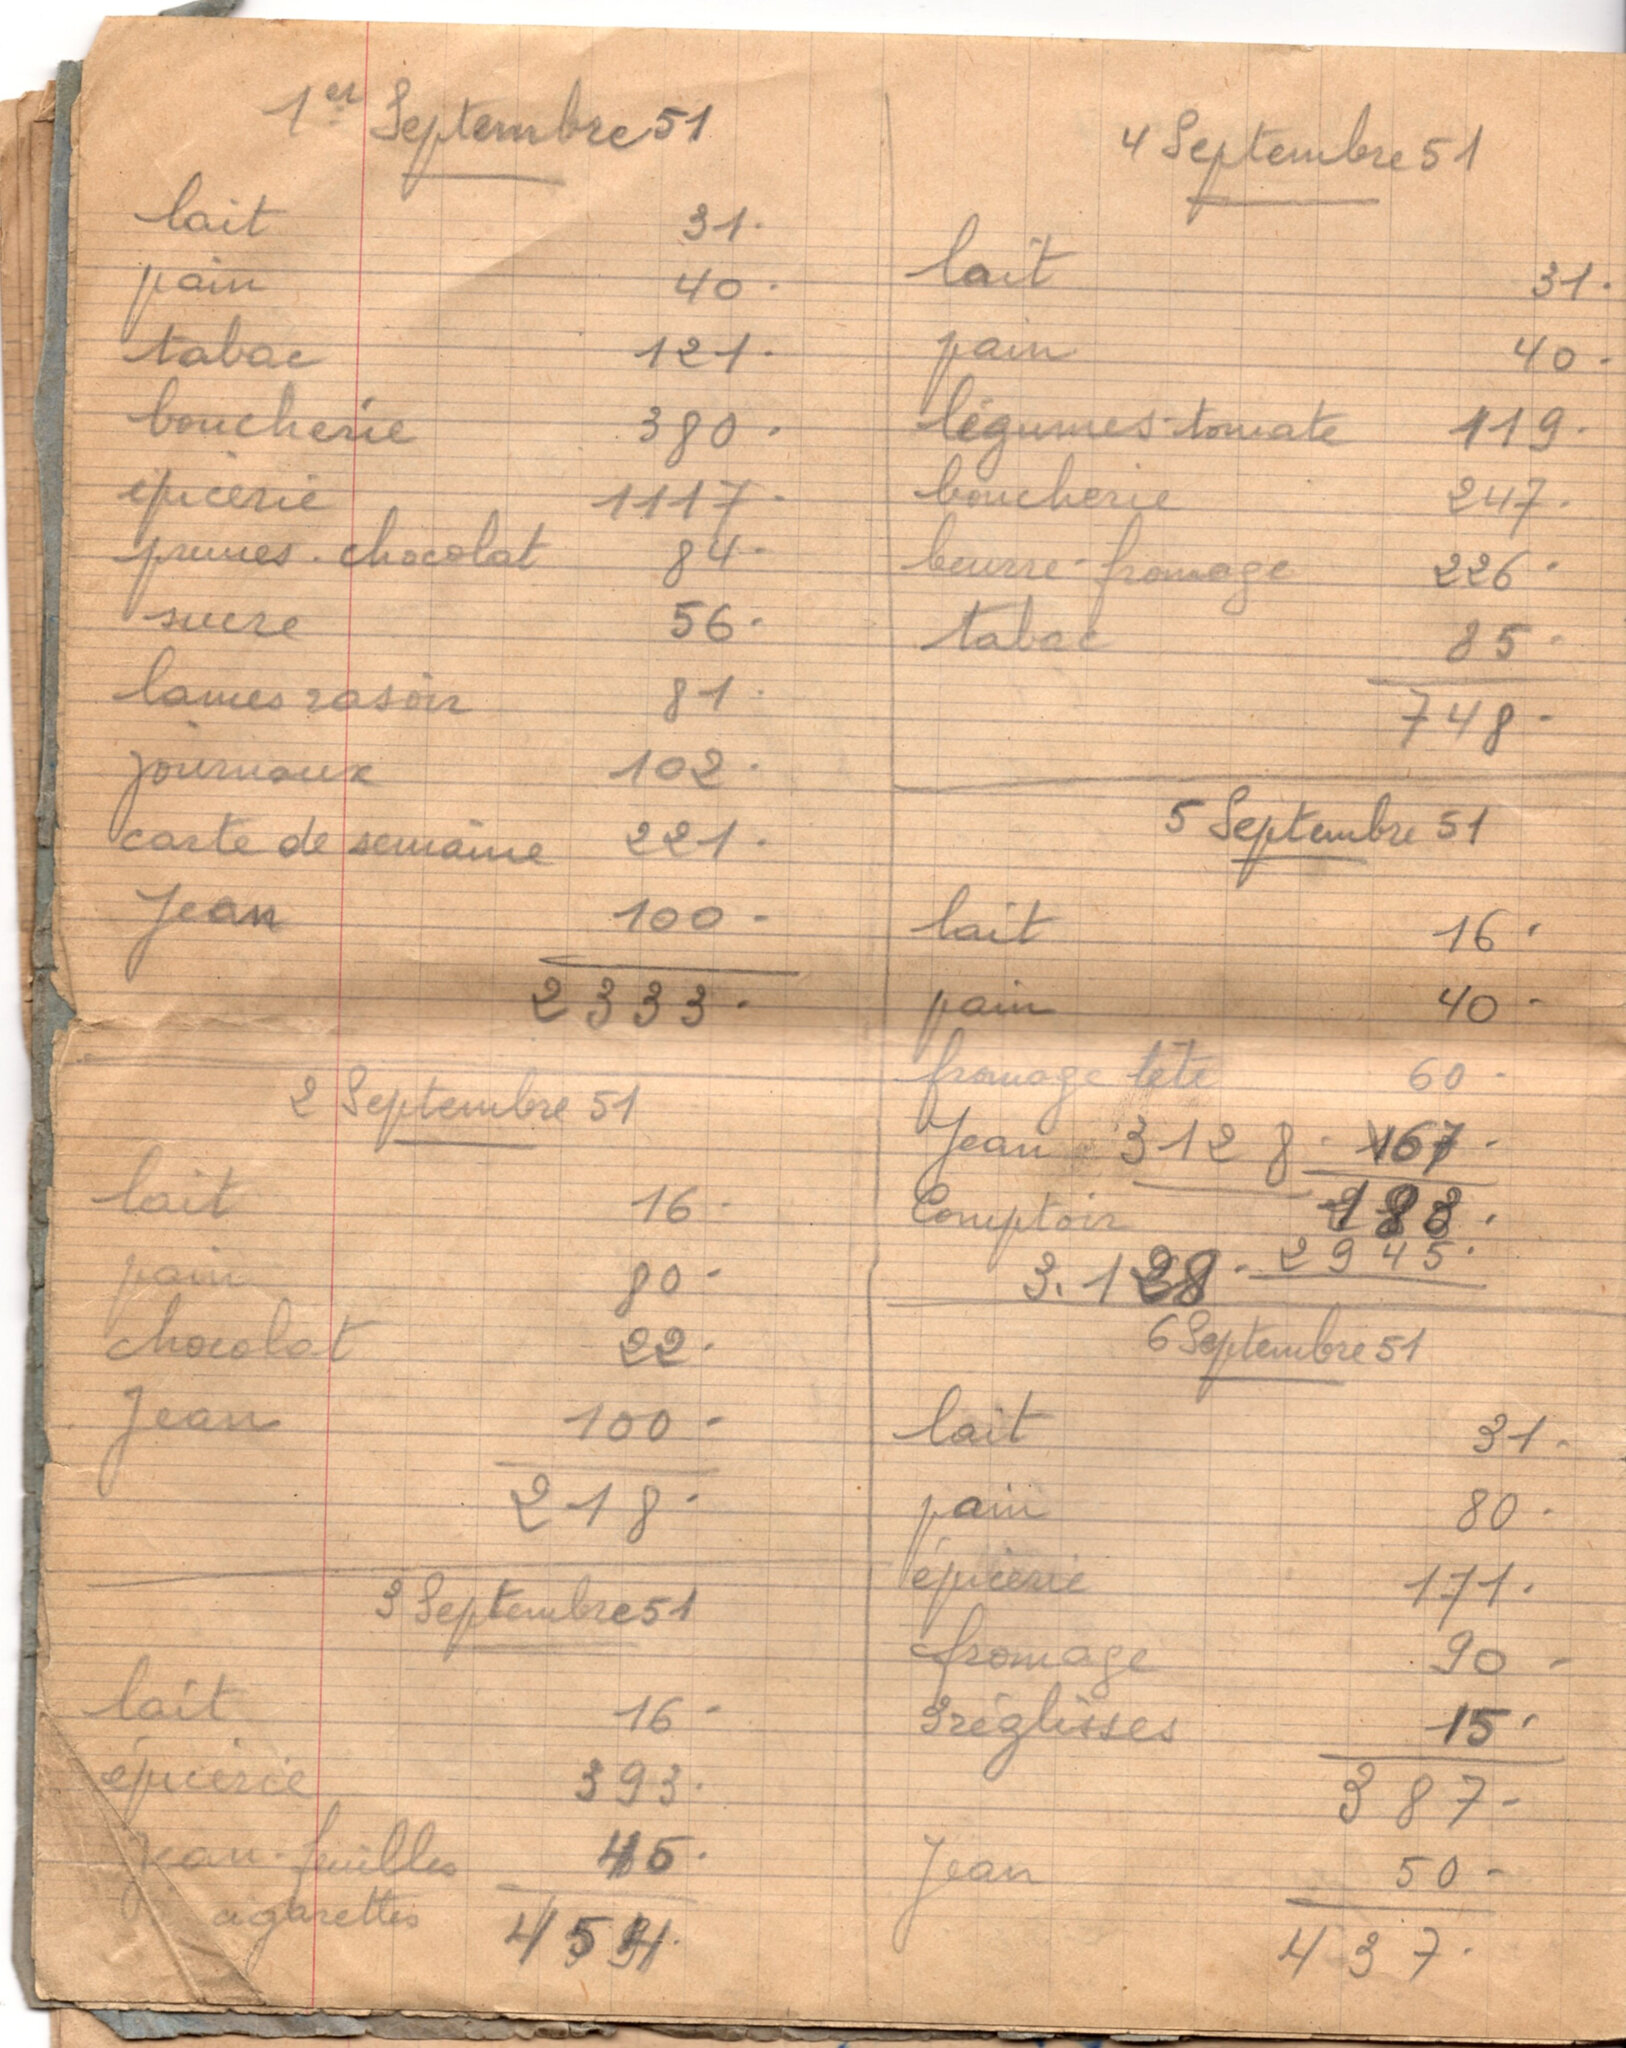 1er Septembre 51
lait 31.
pain 40.
tabac 121.
boucherie 380.
épicerie 1117.
prunes. chocolat 84.
sucre 56.
lames rasoir 81.
journaux 102.
carte de semaine 221.
Jean 100.
2333.
2 Septembre 51
lait 16.
pain 80.
chocolat 22.
Jean 100.
218.
3 Septembre 51
lait 16.
épicerie 393.
Jean. feuilles 45.
cigarettes
454.
4 Septembre 51
lait 31.
pain 40.
légumes-tomate 119.
boucherie 247.
beurre-fromage 226.
tabac 85.
748.
5 Septembre 51
lait 16.
pain 40.
fromage tête 60.
Jean 3128. 67.
Comptoir 183.
3.128. 2945.
6 Septembre 51
lait 31.
pain 80.
épicerie 171.
fromage 90.
3 réglisses 15.
387.
Jean 50.
437.